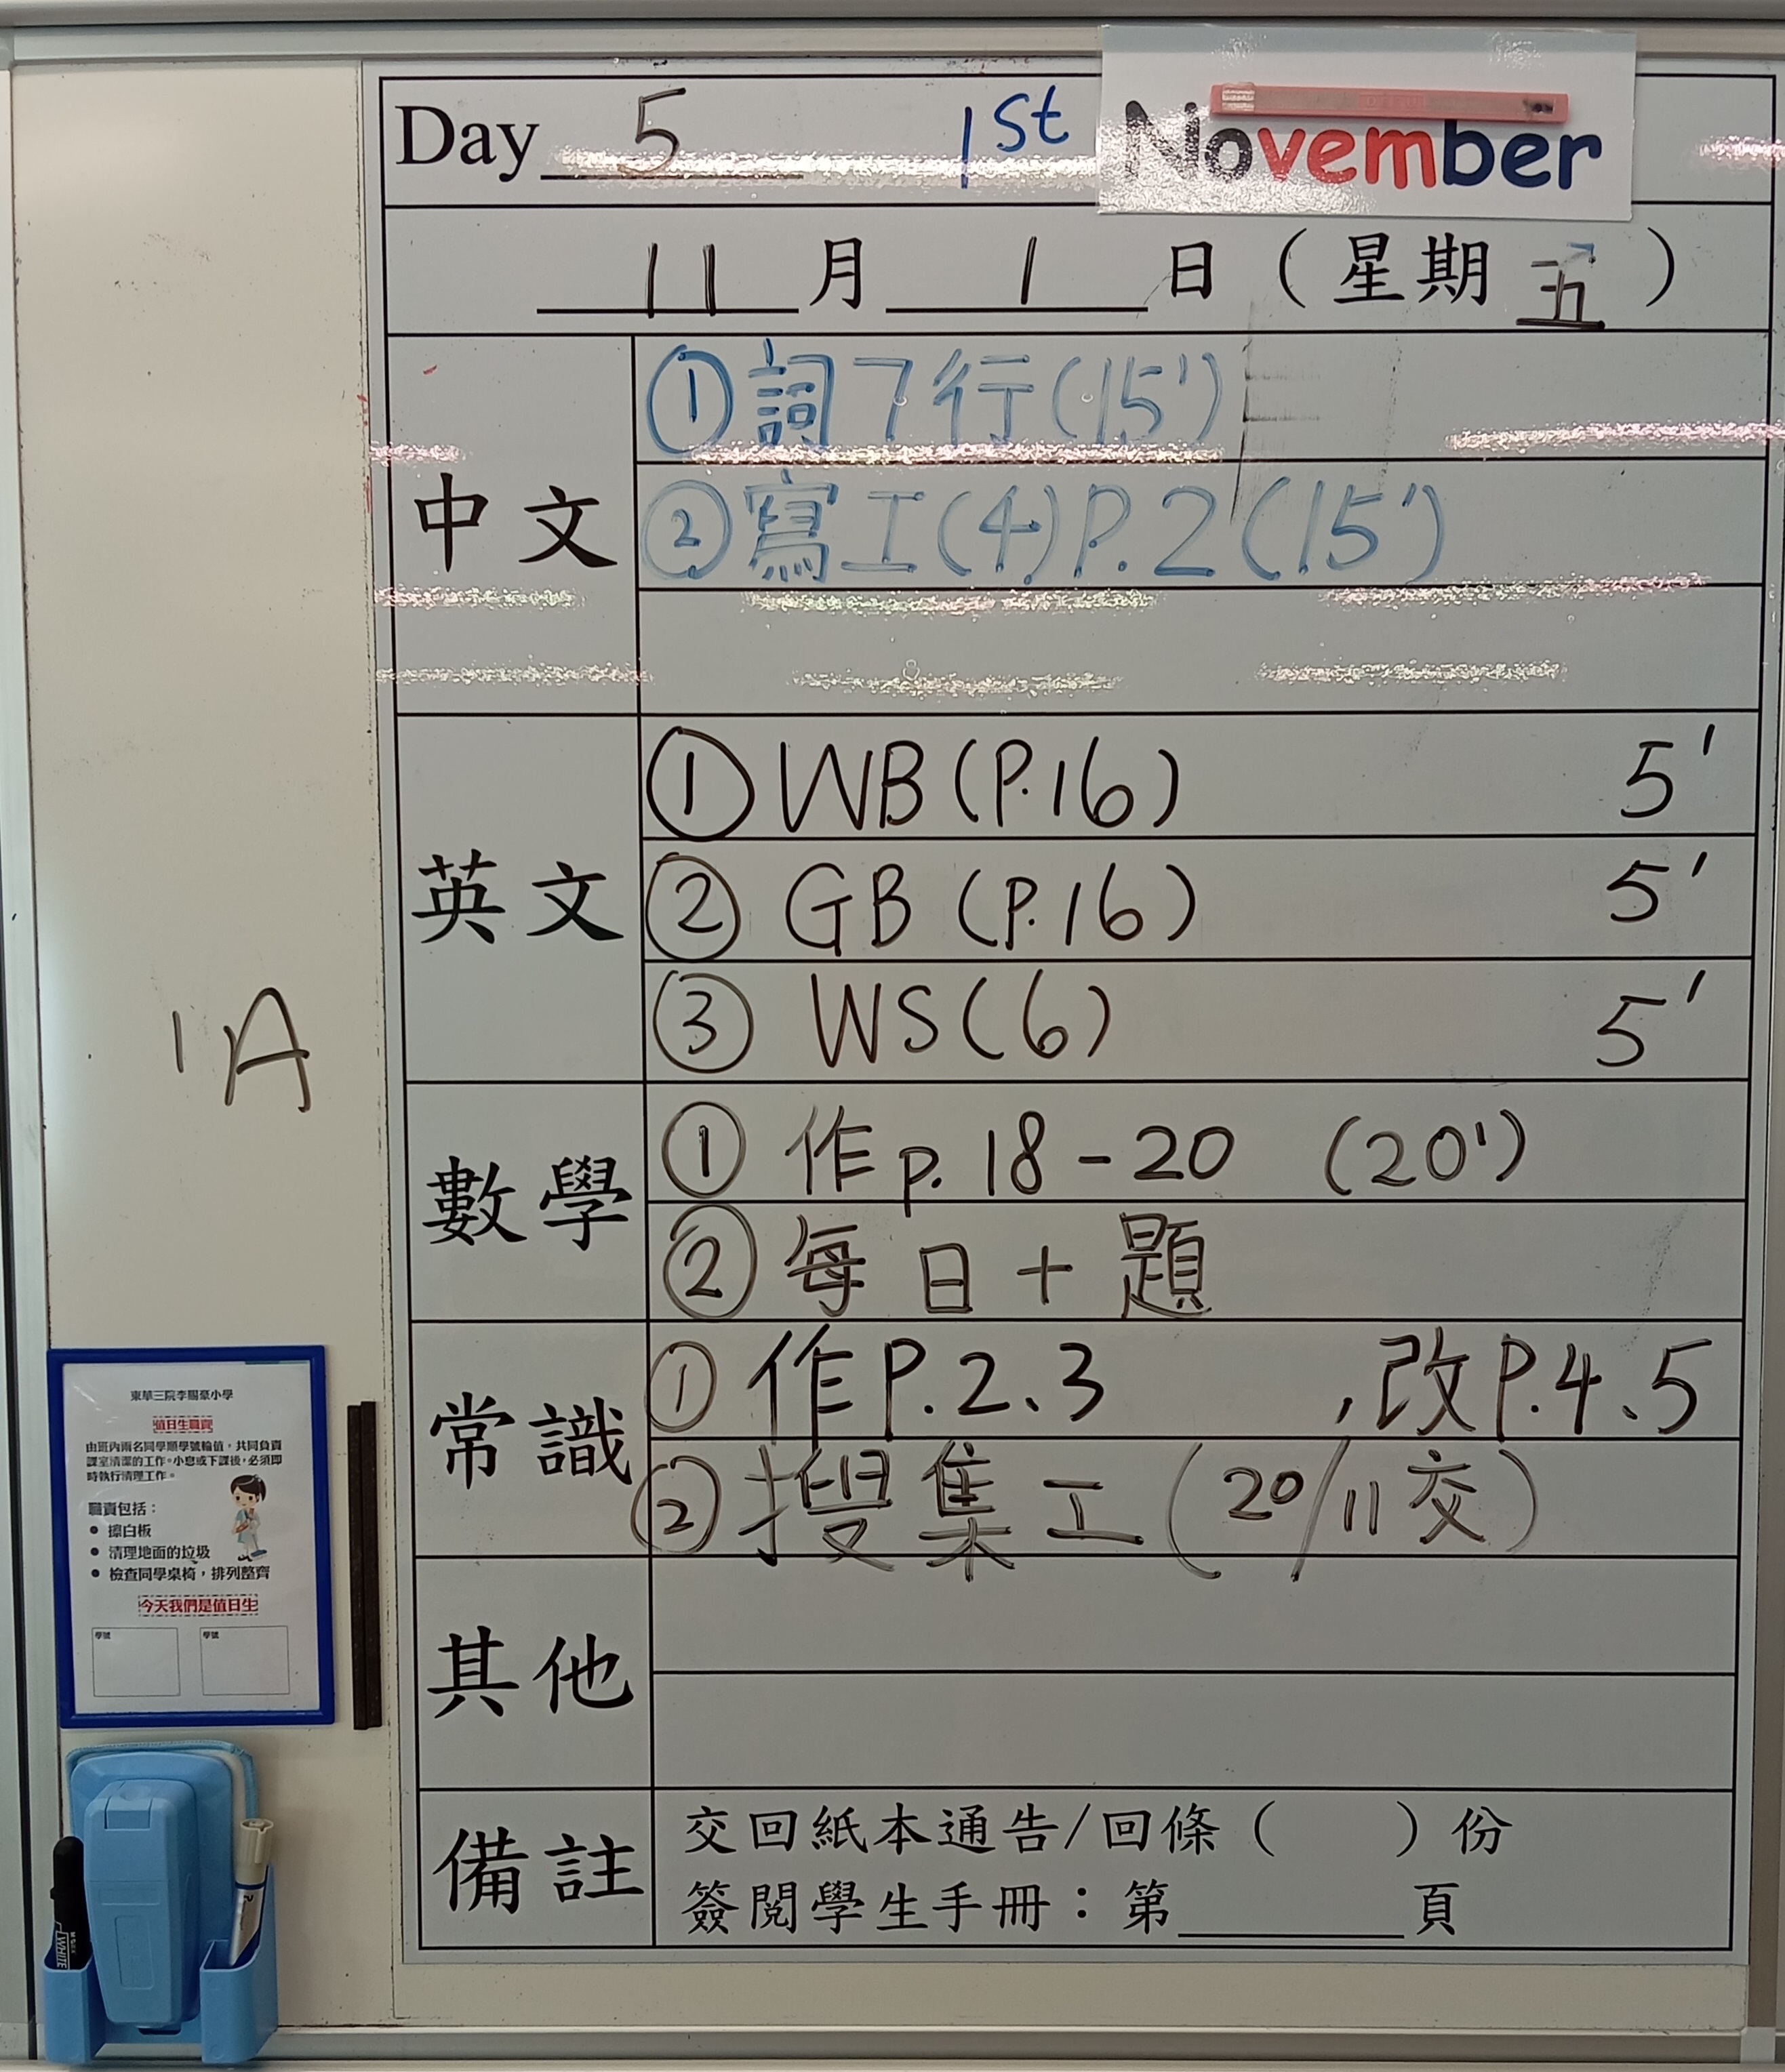 Day 5 1st November
11月1日（星期五）
中文
①詞7行(15')
②寫工(4)P.2(15')
英文
①WB(P.16) 5'
②GB(P.16) 5'
③WS(6) 5'
數學
①作p.18-20 (20')
②每日十題
常識
①作P.2、3 ,改P.4、5
②搜集工(20/11交)
其他
備註
交回紙本通告/回條（ ）份
簽閱學生手冊：第______頁
1A
東華三院李賜豪小學
值日生職責
由班內兩名同學順學號輪值，共同負責
課室清潔的工作。小息或下課後，必須即
時執行清理工作。
職責包括：
• 擦白板
• 清理地面的垃圾
• 檢查同學桌椅，排列整齊
今天我們是值日生
學號 學號
WHITE